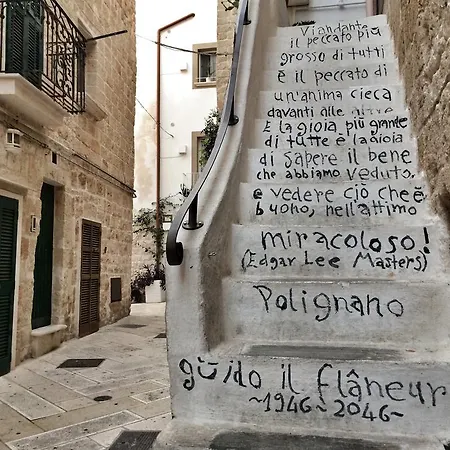 Viandante
il peccato più
grosso di tutti
è il peccato di
un'anima cieca
davanti alle altre
E la gioia, più grande
di tutte è la gioia
di sapere il bene
che abbiamo veduto,
e vedere ciò che è
buono, nell'attimo
miracoloso!
(Edgar Lee Masters)
Polignano
guido il flâneur
~1946~2046~